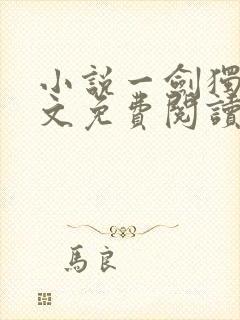 小説一劍獨
文免費閱讀
馬良